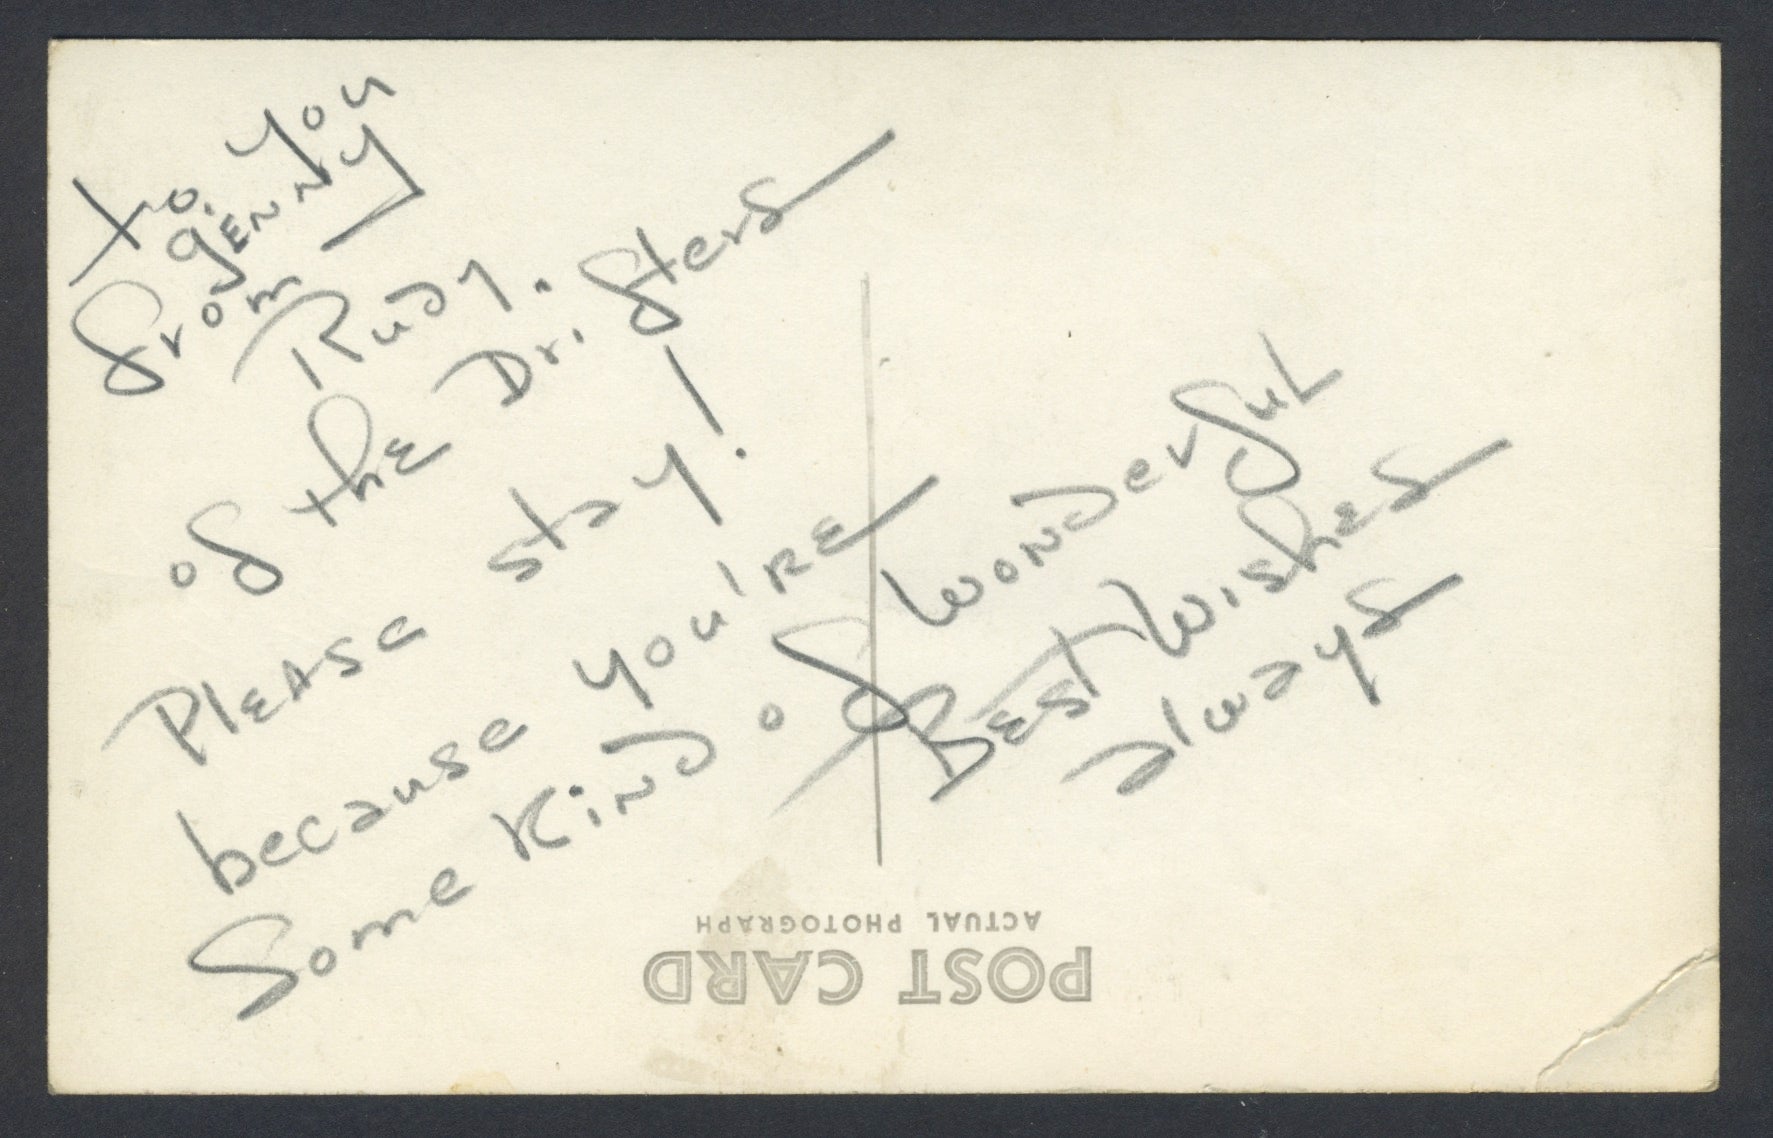 to. you
gENNy
from
Rudy.
of the Dr.ifters
PlEAse stay!
because you'RE
Some Kind of WONDerful
BEST Wishes
always
ACTUAL PHOTOGRAPH
POST CARD